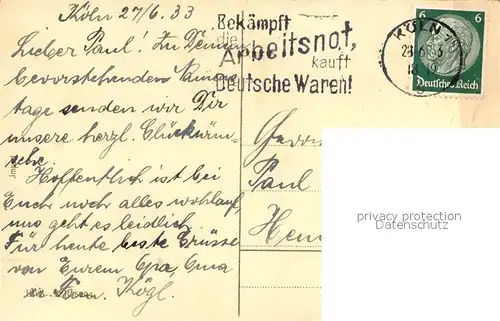 Köln 27/6. 33
Lieber Paul! Zu Deinem
bevorstehenden Namens
tage senden wir Dir
unsere herzl. Glückwün-
sche.
Hoffentlich ist bei
Euch noch alles wohlauf,
uns geht es leidlich.
Für heute beste Grüsse
von Eurem Opa, Oma
Kögl.
Bekämpft
die
Arbeitsnot,
kauft
Deutsche Waren!
KÖLN
6 6
Deutsches Reich
Herrn
Paul
privacy protection
Datenschutz